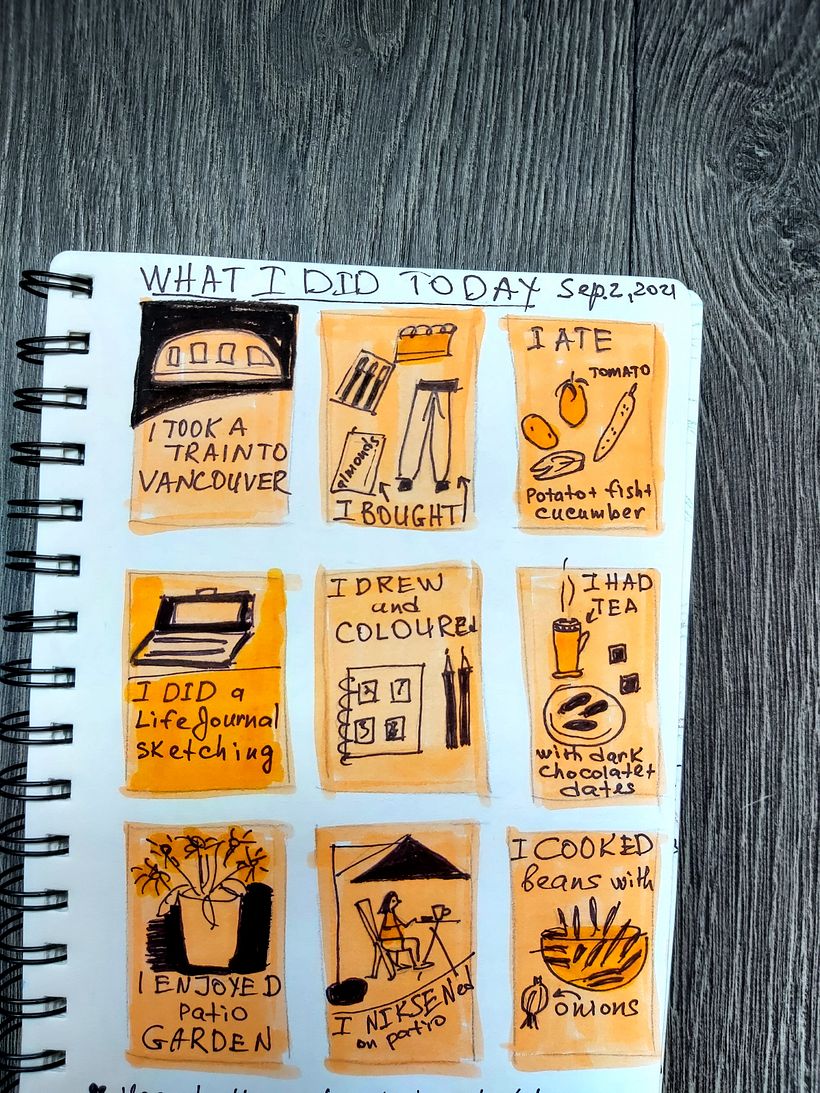 WHAT I DID TODAY Sep.2,2021
I TOOK A
TRAIN TO
VANCOUVER
Almonds
I BOUGHT
I ATE
TOMATO
Potato + fish +
cucumber
I DID a
Life Journal
sketching
I DREW
and
COLOURED
I HAD
TEA
with dark
chocolate +
dates
I ENJOYED
Patio
GARDEN
I NIKSENed
on patio
I COOKED
beans with
onions